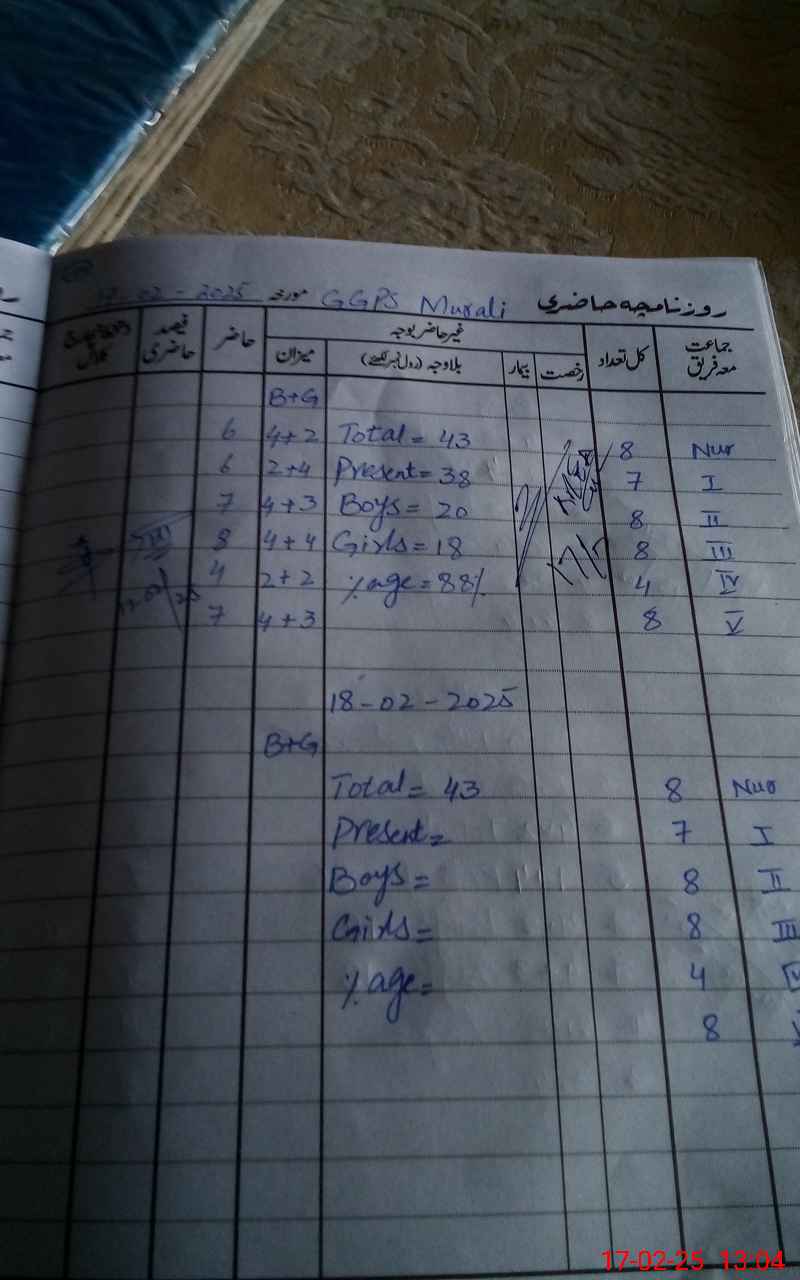 روزنامچہ حاضری GGPS Murali مورخہ 17-02-2025
جماعت معہ فریق کل تعداد غیر حاضر بوجہ حاضر فیصد حاضری
رخصت بیمار بلاوجہ (رول نمبر لکھئے) میزان
B+G
Nur 8 Total = 43 4+2 6
I 7 Present = 38 2+4 6
II 8 Boys = 20 4+3 7
III 8 Girls = 18 4+4 8
IV 4 % age = 88% 2+2 4
V 8 4+3 7
18-02-2025
B+G
Nur 8 Total = 43
I 7 Present =
II 8 Boys =
III 8 Girls =
IV 4 % age =
V 8
17-02-25 13:04